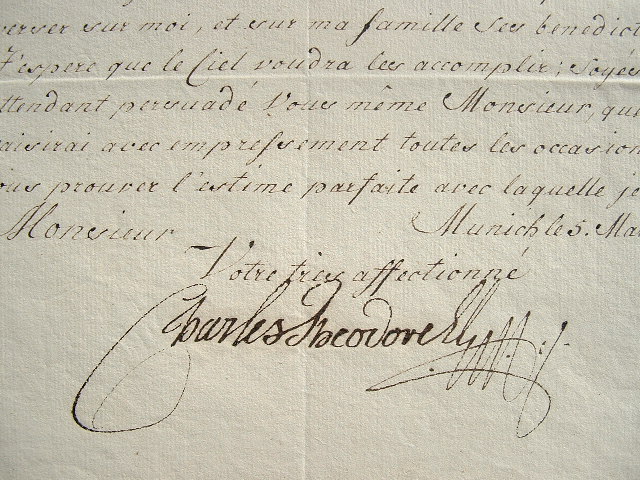 verser sur moi, et sur ma famille ses benedict
J'espere que le Ciel voudra les accomplir; soyés
ttendant persuadé Vous même Monsieur, que
aisirai avec empressement toutes les occasion
ous prouver l'estime parfaite avec laquelle je
Monsieur
Munich le 5. Mai
Votre tres affectionné
Charles Theodore